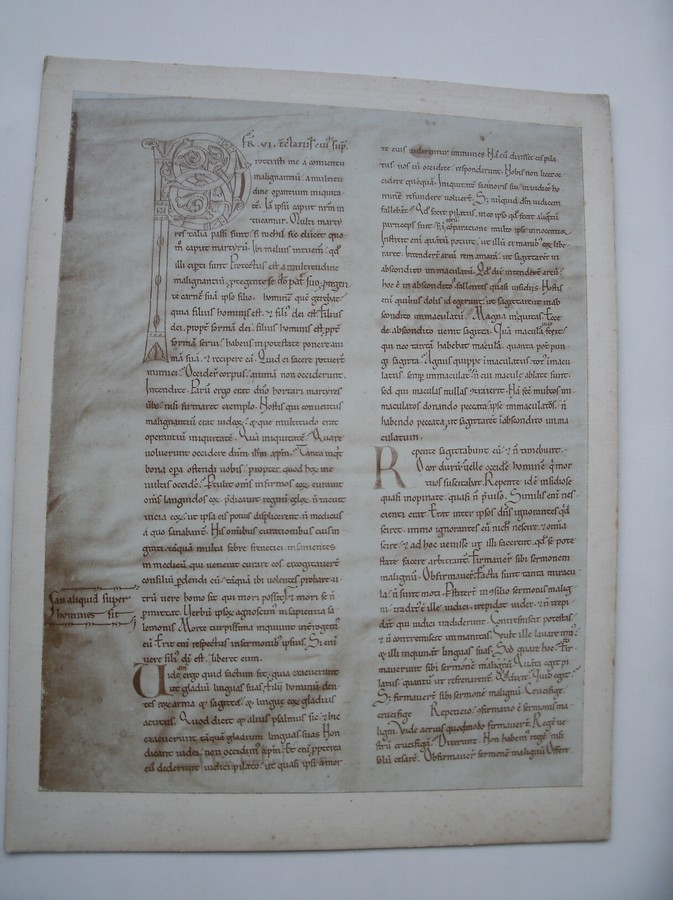 Protexisti me a conuentu
malignantiū. a multitu
dine operantium iniquita
tē. Iā ipsū caput nr̄m in
tueamur. Multi marty
res talia passi sunt. sꝫ nichil sic elucet quo
m̄ caput martyrū. Ibi melius intuem̄. qd̓
illi expti sunt. Protectus est a multitudine
malignantiū. ptegente se dō.
te carnē suā ipso filio. hominē quē gerebat.
quia filius hominis est. & fili᾽ dei est. filius
dei. propt̓ formā dei. filius hominis est. ppt̓
formā serui. habens in potestate ponere ani
mā suā. & recipere eā. Quid ei facere potuert̄
inimici. Occider̄ corpus. animā non occiderunt.
Intendite. Parū ergo erat dn̄o hortari martyres
illo. nisi firmaret exemplo. Nostis qui conuentus
malignantiū erat iudeoꝝ. & que multitudo erat
operantiū iniquitatē. Quā iniquitatē. Quare
uoluerunt occidere dn̄m ihm̄ xpm̄. Tanta inq̇t
bona opa ostendi uobis. propter quod hoꝝ me
uultis occidē. Ptulit oms̄ infirmos eoꝝ. curauit
oms̄ languidos eoꝝ. pdicauit regnū celoꝝ. n̄ tacuit
uicia eoꝝ. ut ipsa eis potius displicerent. n̄ medicus
a quo sanabant̄. His omibus curationibus eius in
grati. tāquā multa febre frenetici. insanientes
in medicū qui uenerat curare eos. excogitauert̄
consiliū pdendi eū. tāquā ibi uolentes probare u
trū uere homo sit. qui mori possit. an aliquid super
homines sit
& mori se n̄
pmittat. Verbū ipsoꝝ agnoscim̄ in sapientia sa
lemonis. Morte turpissima inquiunt interrogem̄
eū. Erit eni respectus in sermonib᾽ ipsius. Si eni
uere fili᾽ di est. liberet eum.
Uidete ergo quid factum sit. quia exacuerunt
ut gladiū linguas suas. filii hominū den
tes eoꝝ arma & sagitta. & lingua eoꝝ gladius
acutus. Quod dicit & alius psalmus sic. & hic
exacuerunt tāquā gladium linguas suas. Non
dicant iudei. non occidim̄ xpm̄. Et eni pptea
eū dederunt iudici pilato. ut quasi ipsi a mor
te eius uiderentur immunes. Nā cū dixisset eis pila
tus. uos eū occidite. responderunt. Nobis non licet oc
cidere quēquā. Iniquitatē facinoris sui in iudicē ho
minē refundere uolebant. Sꝫ nūquid dm̄ iudicem
fallebant. Qd̓ fecit pilatus. in eo ipso qd̓ fecit aliq̇ntū
particeps fuit. sꝫ in cōparatione illoꝝ multo ipse innocentior.
Institit eni quantū potuit. ut illū ex manib᾽ eoꝝ libe
raret. Intenderunt arcū rem amarā. ut sagittarent in
abscondito immaculatū. Qd̓ dixi intenderunt arcū.
hoc ē in abscondito. fallentes. quasi insidiis. Nostis
eni quibus dolis id egerunt. ut sagittarent in ab
scondito immaculatū. Magna iniquitas. Ecce
de abscondito uenit sagitta. Quā macula
qui nec tantā habebat maculā. quanta potest pun
gi sagitta. Agnus quippe immaculatus. tot᾽ imacu
latus. semp immaculatus. n̄ cui macule ablate sunt.
sed qui maculas nullas contraxerit. Nā fec̄ multos im
maculatos donando peccata. ipse immaculatus. n̄
habendo peccata. ut sagittarent ī abscondito imma
culatum.
Repente sagittabunt eū. & n̄ timebunt.
O cor durū. uelle occidē hominē. q̇ mor
tuos suscitabat. Repente. idē insidiose
quasi inopinate. quasi n̄ puiso. Similis eni nes
cienti erat. Erat inter ipsos dn̄s ignorantes qd̓
sciret. immo ignorantes eū nichil nescire. & omnia
scire. & ad hoc uenisse. ut illi facerent. qd̓ se pote
state facere arbitrant̄. Firmauer̄ sibi sermonem
malignū. Obfirmauer̄. Facta sunt tanta miracu
la. n̄ sunt moti. Pstiter̄ in ɔsilio sermonis malig
ni. tradit᾽ ē ille iudici. trepidat iudex. & n̄ trepi
dant qui iudici tradiderunt. Contremiscit potestas.
& n̄ contremiscit immanitas. Vult ille lauare man᾽.
& illi inquinant linguas suas. Sed quare hoc. Fir
mauerunt sibi sermonē malignū. Quāta egit pi
latus quantū ut refrenarent̄. Quid dixit. Quid egit.
Sꝫ firmauer̄ sibi sermonē malignū. Crucifige
crucifige. Repetitio. ɔfirmatio ē sermonis ma
ligni. Vide acrius quomodo firmauer̄. Regē ue
strū crucifigā. Dixerunt. Non habem᾽ regē nisi
solū cesarē. Obfirmauer̄ sermonē malignū. Offere